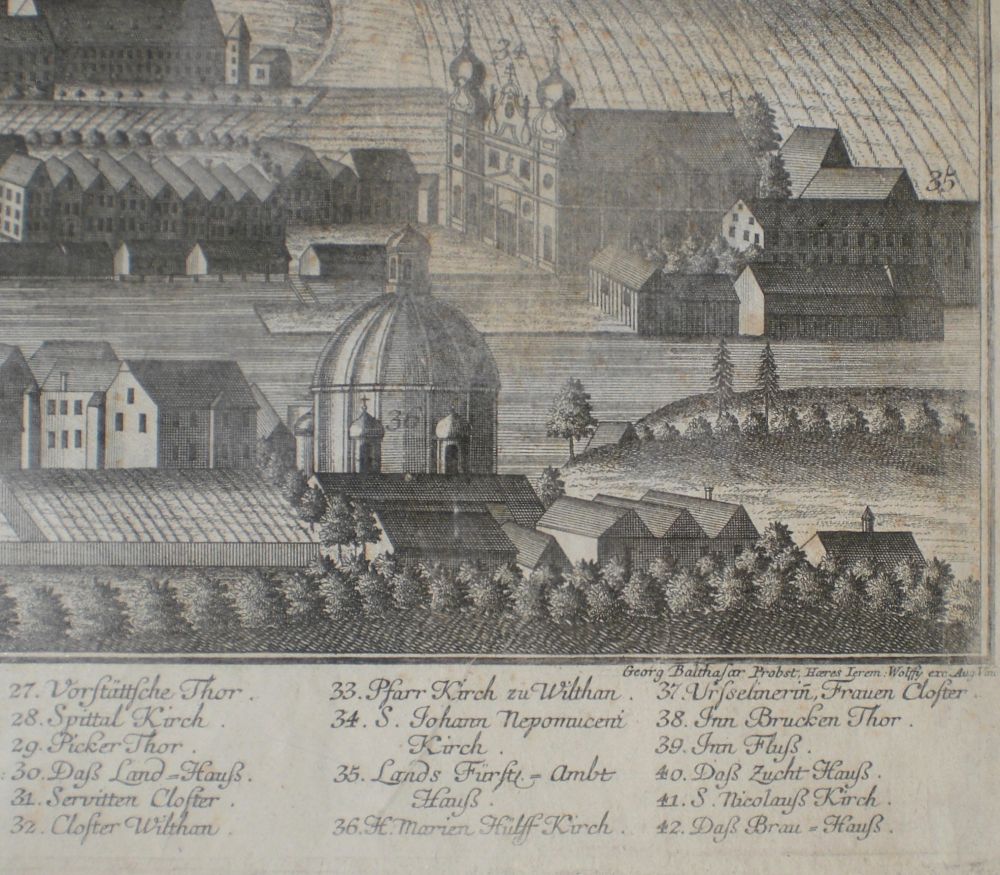 34
35
36
Georg Balthasar Probst, Hæres Ierem. Wolffy exc. Aug. Vin
27. Vorſtättſche Thor.
28. Spittal Kirch.
29. Picker Thor.
30. Daß Land=Hauß.
31. Servitten Cloſter.
32. Cloſter Wilthan.
33. Pfarr Kirch zu Wilthan.
34. S. Iohann Nepomuceni
Kirch.
35. Lands Fürſtl= Ambt
Hauß.
36. H. Marien Hülff Kirch.
37. Urſſelinerin, Frauen Cloſter
38. Inn Brucken Thor.
39. Inn Fluß.
40. Daß Zucht Hauß.
41. S. Nicolauß Kirch.
42. Daß Brau=Hauß.